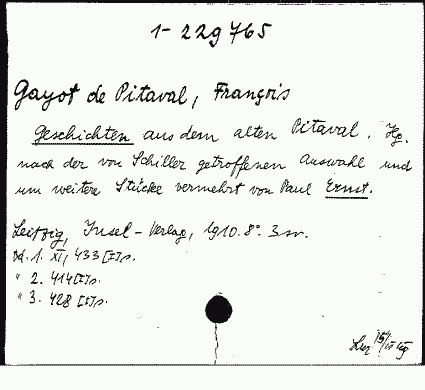 1-229765
Gayot de Pitaval, François
Geschichten aus dem alten Pitaval. Hg.
nach der von Schiller getroffenen Auswahl und
um weitere Stücke vermehrt von Paul Ernst.
Leipzig, Insel-Verlag, 1910. 8°. 3 Bd.
Bd. 1. XI, 433 [I] s.
" 2. 414 [I] s.
" 3. 428 [I] s.